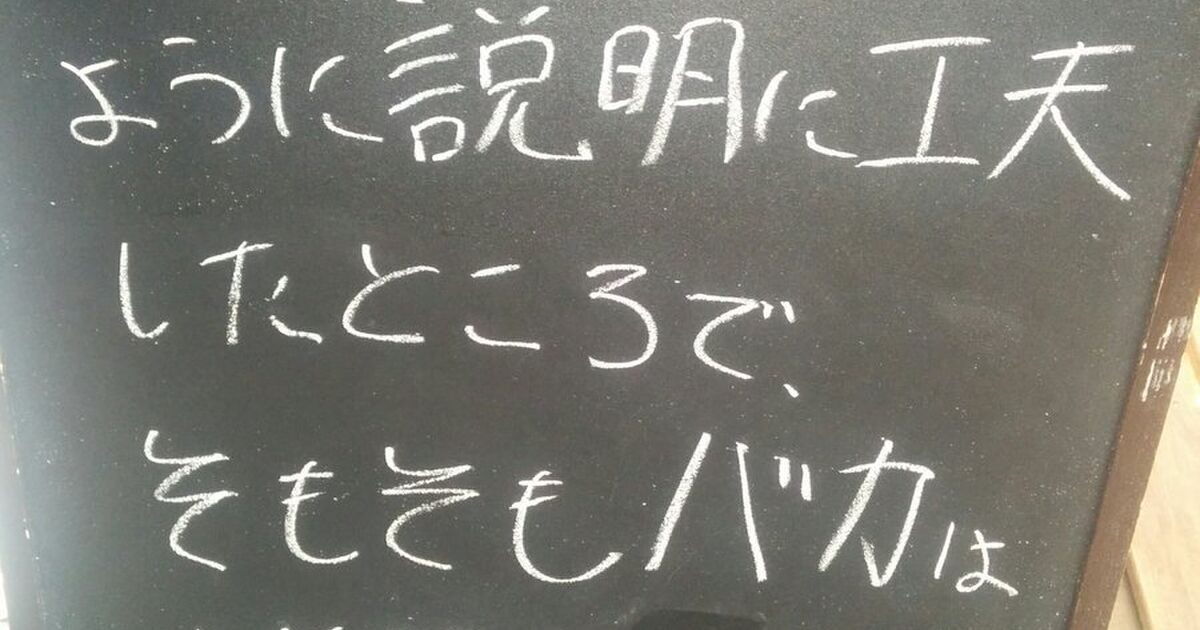 ように説明に工夫
したところで、
そもそもバカは